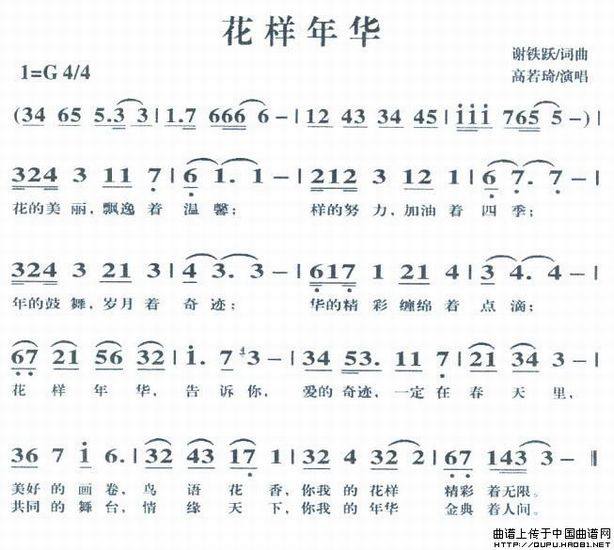 花样年华
谢铁跃/词曲
1=G 4/4
高若琦/演唱
(34 65 5.3 3 | 1.7 666 6 - | 12 43 34 45 | iii 765 5 -) |
324 3 11 7 | 6 1. 1 - | 212 3 12 1 | 6 7. 7 - |
花的美丽,飘逸着 温馨; 样的努力,加油着 四季;
324 3 21 3 | 4 3. 3 - | 617 1 21 4 | 3 4. 4 - |
年的鼓舞,岁月着 奇迹; 华的精彩缠绵着 点滴;
67 21 56 32 | i. 7 43 - | 34 53. 11 7 | 21 34 3 - |
花样年华,告诉你, 爱的奇迹,一定在春天里,
36 7 i 6. | 32 43 17 1 | 32 4 32 2 | 67 143 3 - ‖
美好的画卷,鸟语花香,你我的花样 精彩着无限。
共同的舞台,情缘天下,你我的年华 金典着人间。
曲谱上传于中国曲谱网
HTTP://QUPU.HAO81.NET